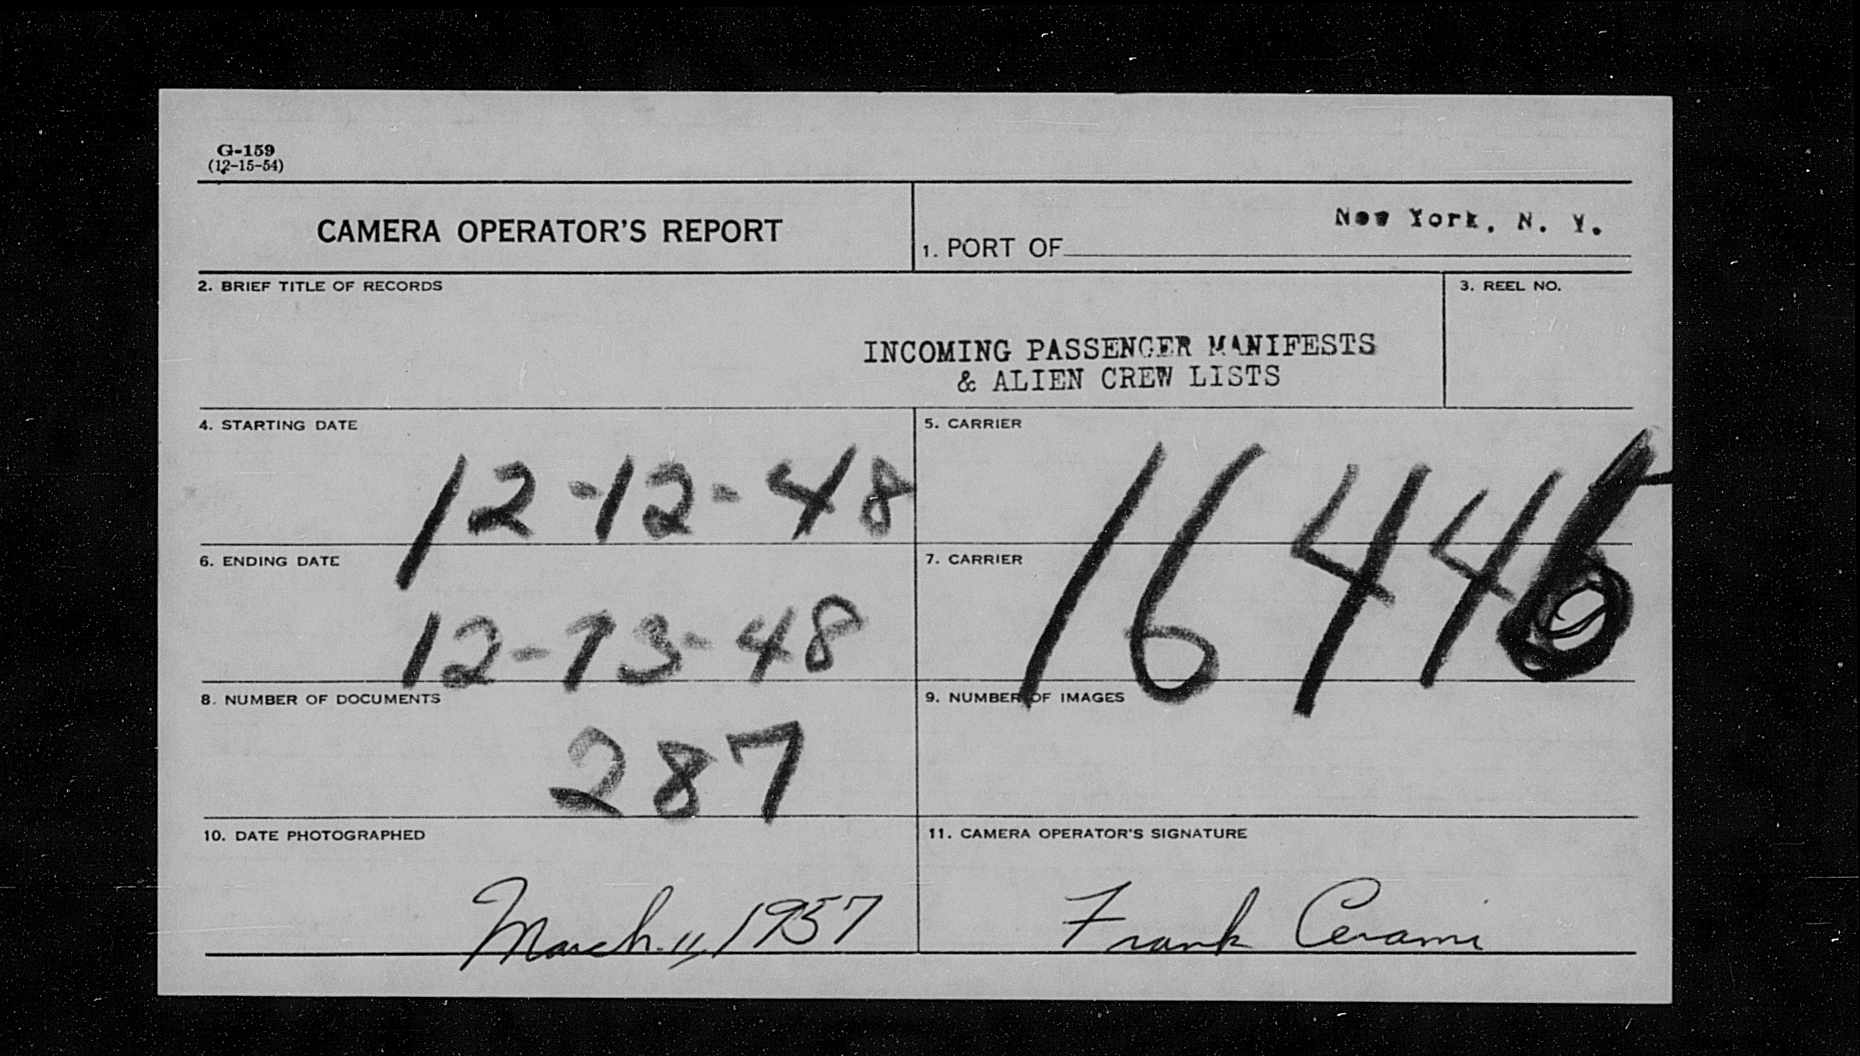 G-159
(12-15-54)
CAMERA OPERATOR'S REPORT
1. PORT OF New York, N. Y.
2. BRIEF TITLE OF RECORDS
INCOMING PASSENGER MANIFESTS
& ALIEN CREW LISTS
3. REEL NO.
4. STARTING DATE
12-12-48
5. CARRIER
6. ENDING DATE
12-13-48
7. CARRIER
8. NUMBER OF DOCUMENTS
287
9. NUMBER OF IMAGES
10. DATE PHOTOGRAPHED
March 11, 1957
11. CAMERA OPERATOR'S SIGNATURE
Frank Cerami